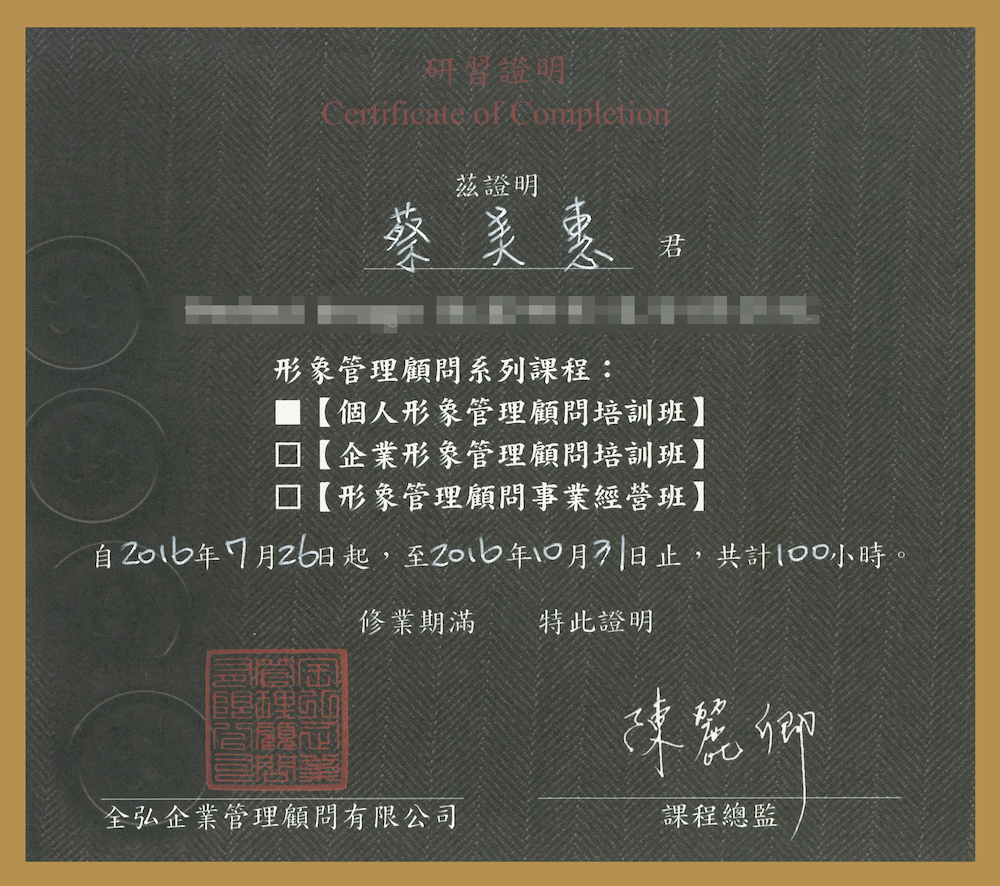 研習證明
Certificate of Completion
茲證明
蔡美惠 君
形象管理顧問系列課程：
■【個人形象管理顧問培訓班】
□【企業形象管理顧問培訓班】
□【形象管理顧問事業經營班】
自2016年7月26日起，至2016年10月31日止，共計100小時。
修業期滿 特此證明
陳麗卿
全弘企業管理顧問有限公司
課程總監